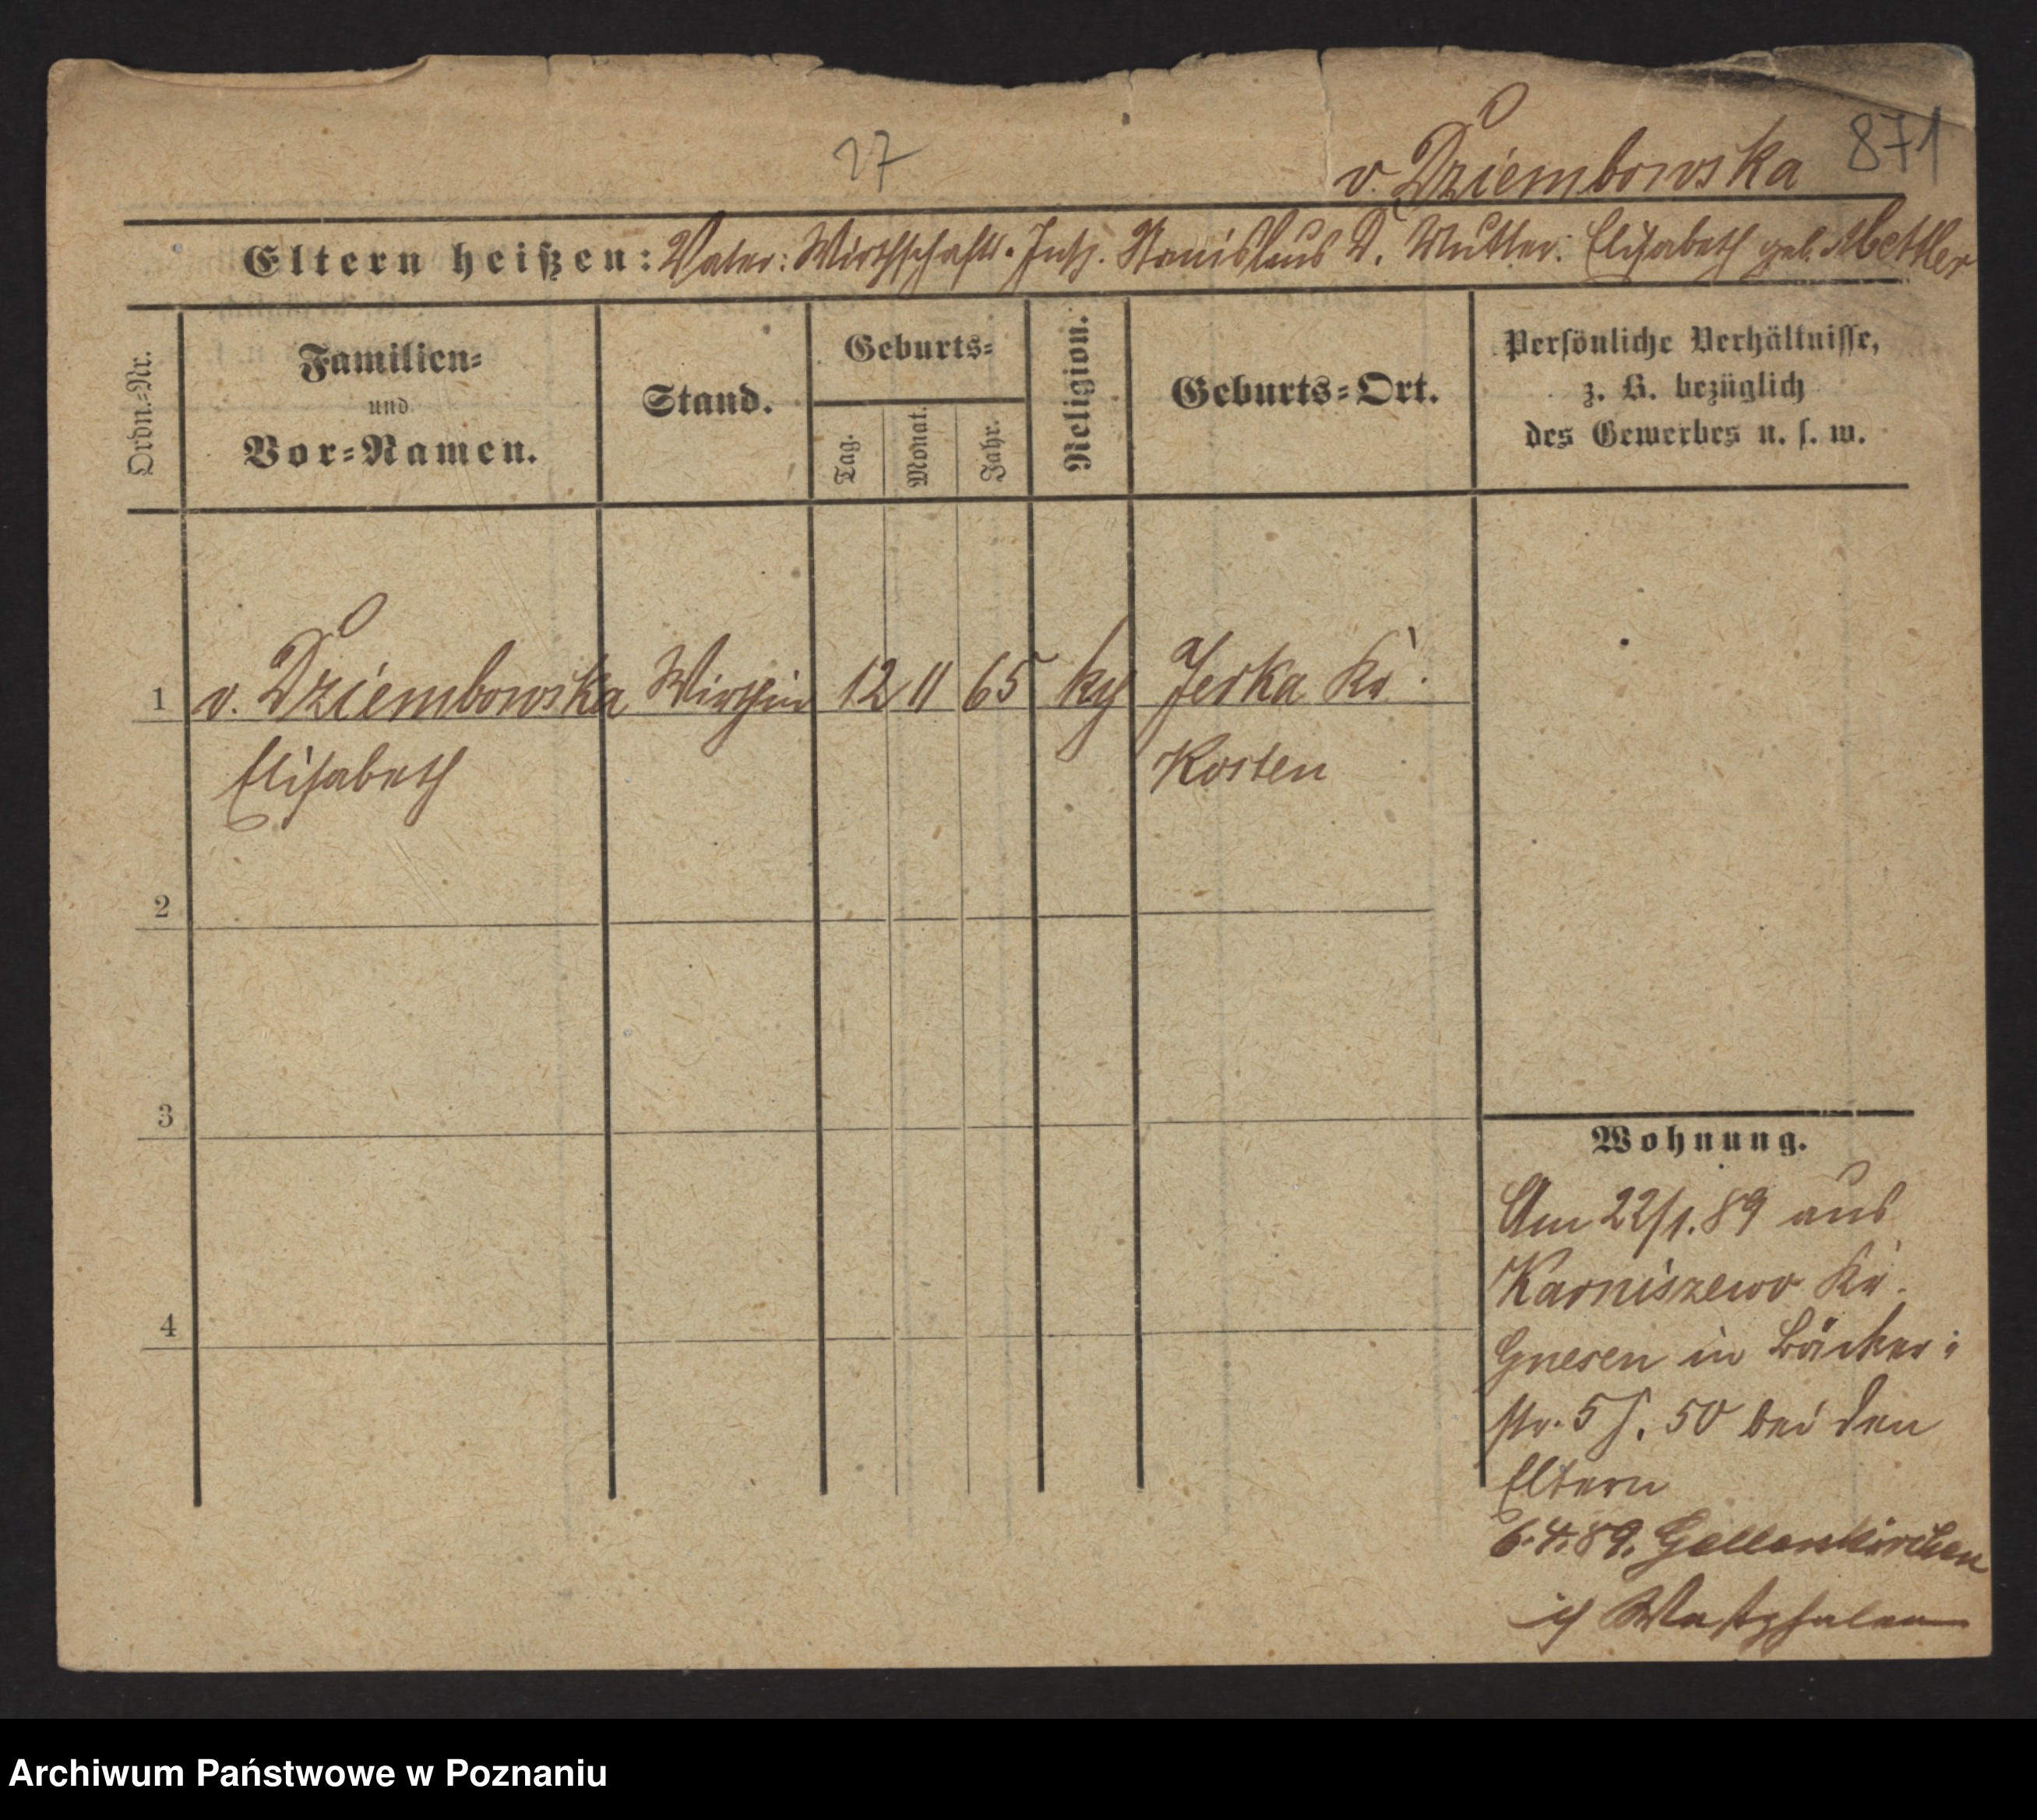 27
v. Dziembowska 871
Eltern heißen: Vater: Wirthschafts-Insp. Stanislaus D. Mutter: Elisabeth geb. Mettler
Ordn.=Nr.
Familien=
und
Vor=Namen.
Stand.
Geburts=
Tag.
Monat.
Jahr.
Religion.
Geburts=Ort.
Persönliche Verhältnisse,
z. B. bezüglich
des Gewerbes u. s. w.
1 v. Dziembowska Wirthin 12 11 65 Jerka Kr.
Elisabeth Kosten
2
3
4
Wohnung.
Am 22/1. 89 aus
Karniszewo Kr.
Gnesen in Bäcker=
str. 5 50 bei den
Eltern
6.4.89. Gellenkirchen
Westphalen
Archiwum Państwowe w Poznaniu